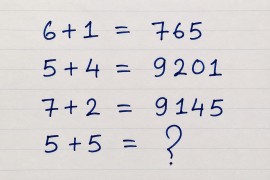 6+1 = 765
5+4 = 9201
7+2 = 9145
5+5 = ?